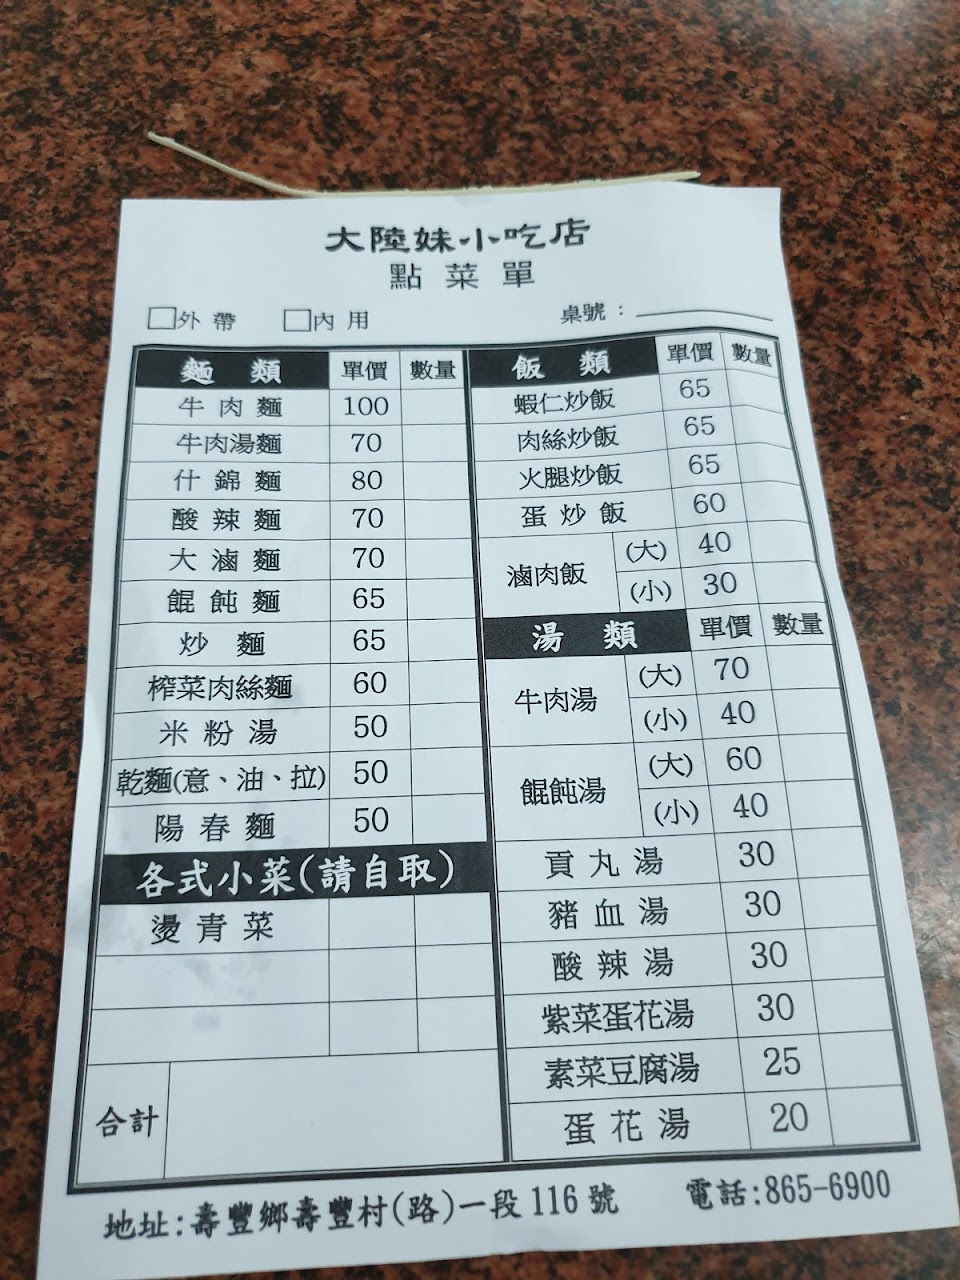 大陸妹小吃店
點菜單
□外帶 □內用 桌號：
麵類 單價 數量
牛肉麵 100
牛肉湯麵 70
什錦麵 80
酸辣麵 70
大滷麵 70
餛飩麵 65
炒麵 65
榨菜肉絲麵 60
米粉湯 50
乾麵(意、油、拉) 50
陽春麵 50
各式小菜(請自取)
燙青菜
合計
飯類 單價 數量
蝦仁炒飯 65
肉絲炒飯 65
火腿炒飯 65
蛋炒飯 60
滷肉飯 (大) 40
(小) 30
湯類 單價 數量
牛肉湯 (大) 70
(小) 40
餛飩湯 (大) 60
(小) 40
貢丸湯 30
豬血湯 30
酸辣湯 30
紫菜蛋花湯 30
素菜豆腐湯 25
蛋花湯 20
地址:壽豐鄉壽豐村(路)一段116號 電話:865-6900